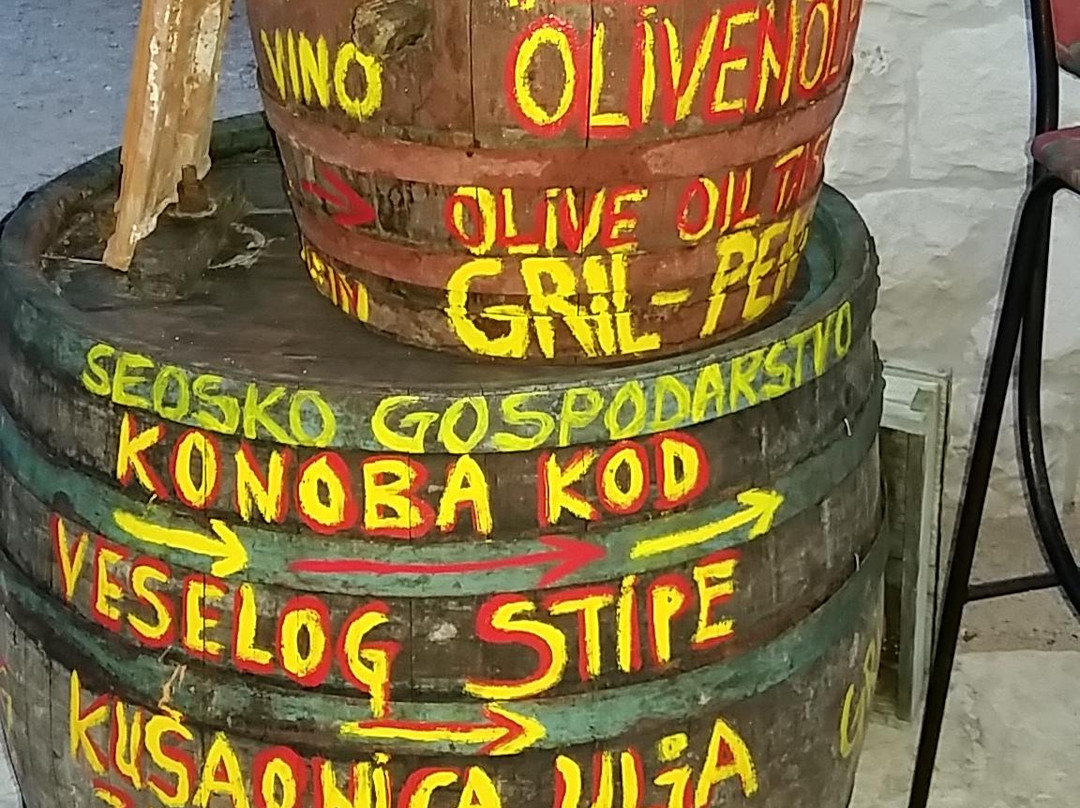 VINO
OLIVENÖL
OLIVE OIL
GRIL-
SEOSKO GOSPODARSTVO
KONOBA KOD
VESELOG STIPE
KUŠAONICA ULJA